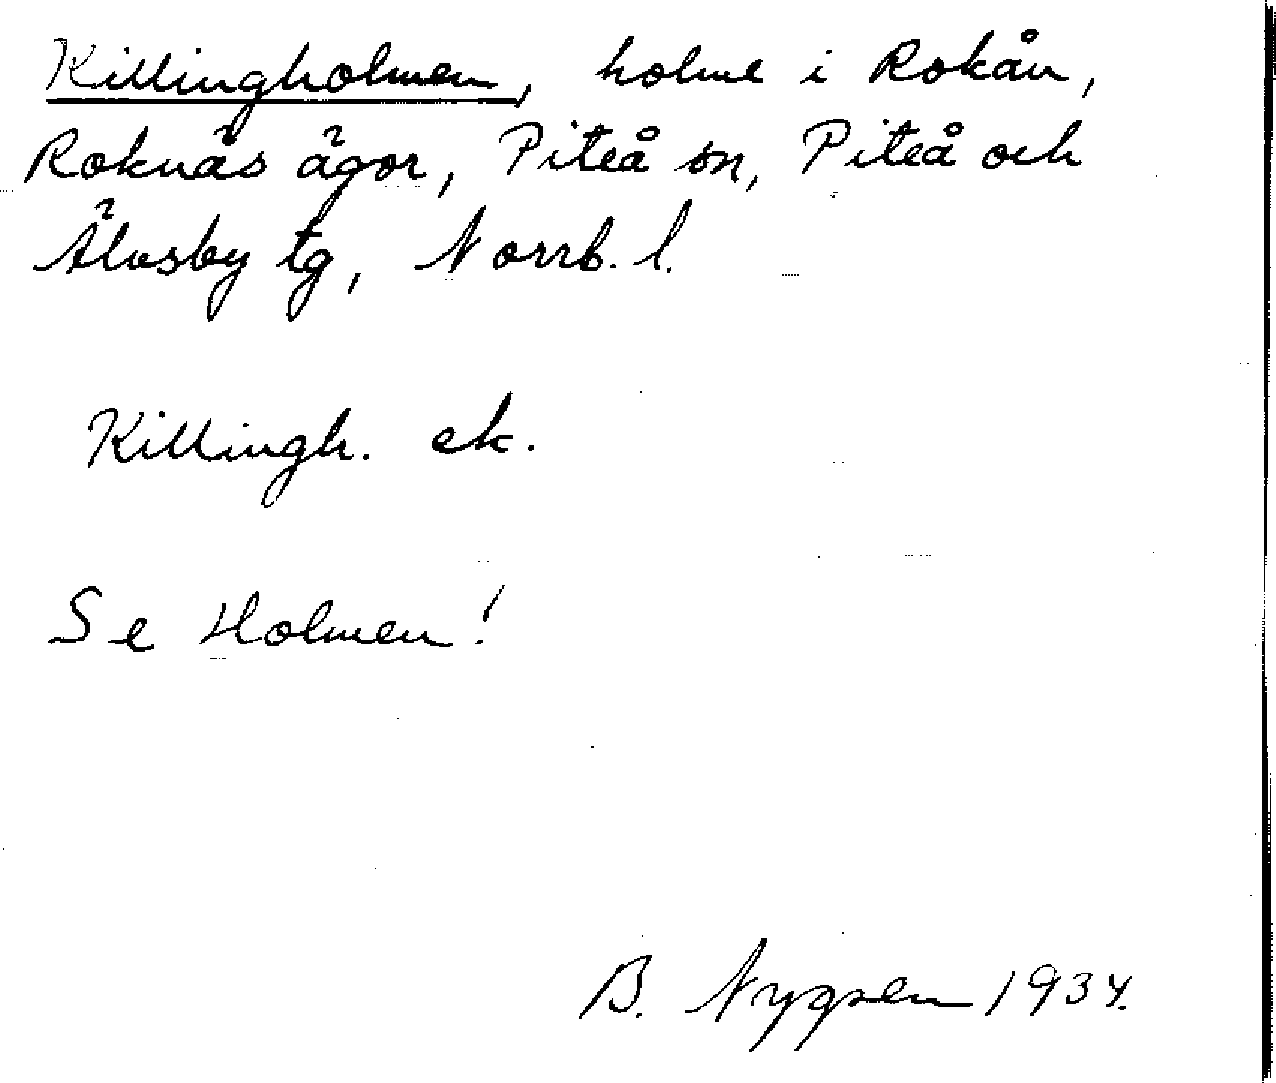 Killingholmen, holme i Rokån,
Roknäs ägor, Piteå sn, Piteå och
Älvsby tg, Norrb. l.
Killingh. ek.
Se Holmen!
B. Nygren 1934.